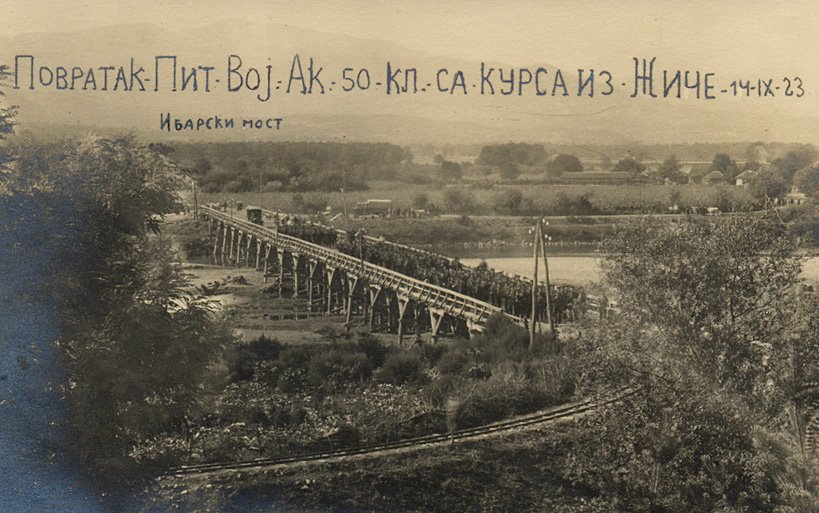 ПОВРАТАК-ПИТ-ВОЈ.-АК.-50-КЛ.-СА-КУРСА ИЗ-ЖИЧЕ-14-IX-23
ИБАРСКИ МОСТ